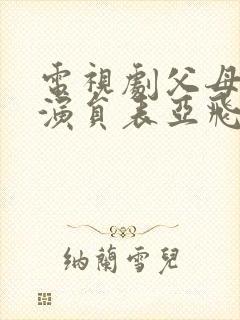 電視劇父母
演員表亞飛
納蘭雪兒